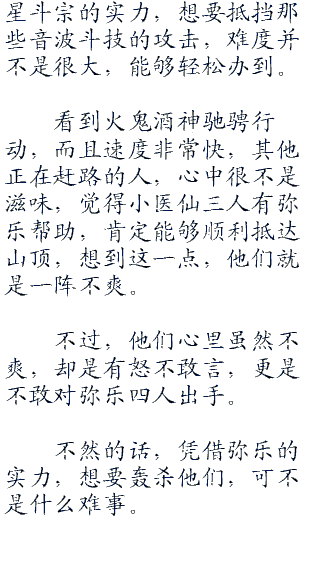 星斗宗的实力，想要抵挡那
些音波斗技的攻击，难度并
不是很大，能够轻松办到。
看到火鬼酒神驰骋行
动，而且速度非常快，其他
正在赶路的人，心中很不是
滋味，觉得小医仙三人有弥
乐帮助，肯定能够顺利抵达
山顶，想到这一点，他们就
是一阵不爽。
不过，他们心里虽然不
爽，却是有怒不敢言，更是
不敢对弥乐四人出手。
不然的话，凭借弥乐的
实力，想要轰杀他们，可不
是什么难事。